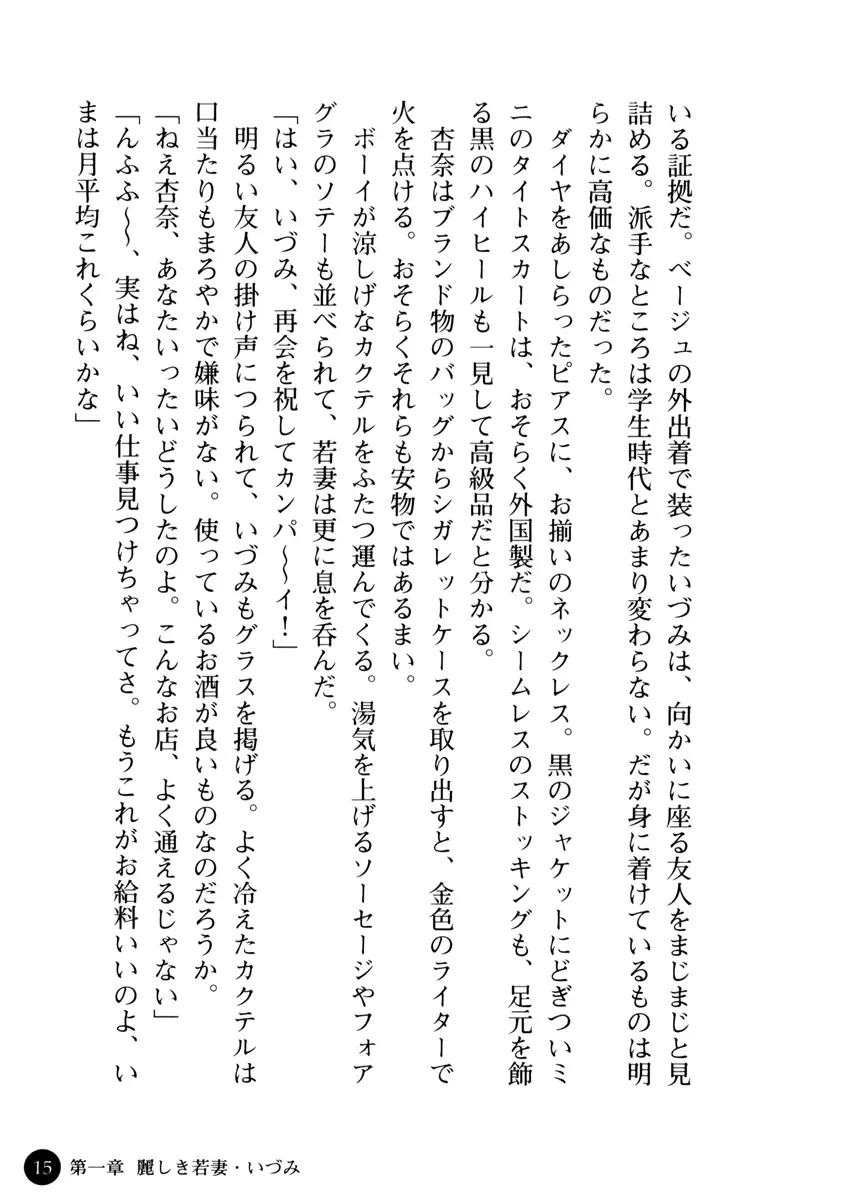 いる証拠だ。ベージュの外出着で装ったいづみは、向かいに座る友人をまじまじと見
詰める。派手なところは学生時代とあまり変わらない。だが身に着けているものは明
らかに高価なものだった。
ダイヤをあしらったピアスに、お揃いのネックレス。黒のジャケットにどぎついミ
ニのタイトスカートは、おそらく外国製だ。シームレスのストッキングも、足元を飾
る黒のハイヒールも一見して高級品だと分かる。
杏奈はブランド物のバッグからシガレットケースを取り出すと、金色のライターで
火を点ける。おそらくそれらも安物ではあるまい。
ボーイが涼しげなカクテルをふたつ運んでくる。湯気を上げるソーセージやフォア
グラのソテーも並べられて、若妻は更に息を呑んだ。
「はい、いづみ、再会を祝してカンパ〜〜イ！」
明るい友人の掛け声につられて、いづみもグラスを掲げる。よく冷えたカクテルは
口当たりもまろやかで嫌味がない。使っているお酒が良いものなのだろうか。
「ねえ杏奈、あなたいったいどうしたのよ。こんなお店、よく通えるじゃない」
「んふふ〜〜、実はね、いい仕事見つけちゃってさ。もうこれがお給料いいのよ、い
まは月平均これくらいかな」
15 第一章 麗しき若妻・いづみ